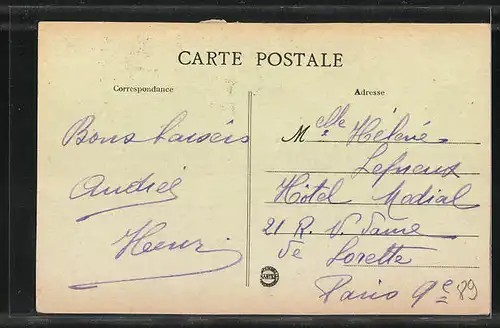 CARTE POSTALE
Correspondance
Adresse
Bons baisers
André
Henri
Melle Hélène
Hôtel Modial
21 R. N. Dame
de Lorette
Paris 9e
89